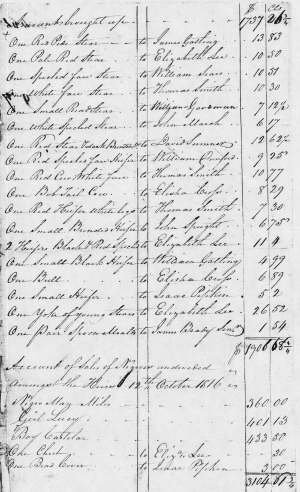 $ Cts
Amounts brought up 1737 26 1/2
One Red Pide Steer to James Gatling 13 83
One Pale Red Steer to Elizabeth Lee 10 50
One Speckled face Steer to William 10 51
One White face Steer to Thomas Smith 10 30
One Small Red Steer to William Goodman 7 12 1/2
One White Speckled Steer to John March 6 17
One Red Steer to David Sumner 12 62 1/2
One Red Speckled face Heifer to William Cross 9 25
One Red Cow White face to Thomas Smith 10 77
One Bob Tail Cow to Elisha Cross 8 29
One Red Heifer White legs to Thomas Smith 7 30
One Small Brindle Heifer to John Speight 6 75
2 Heifers Black & Red Speckled to Elizabeth Lee 11 4
One Small Black Heifer to William Gatling 4 99
One Bull to Elisha Cross 6 89
One Small Heifer to Isaac Pipkin 5 2
One Yoke of young Steers to Elizabeth Lee 26 52
One Pair to James Brady 1 54
$ 1906 68
Account of Sales of Negroes
Amongst the Heirs 12th October 1816
Negro Man Miles 360.00
Girl Lucy 401 13
Boy 433 50
One Chest to Eliza. Lee 20
One to Isaac Pipkin 3.00
3104 51